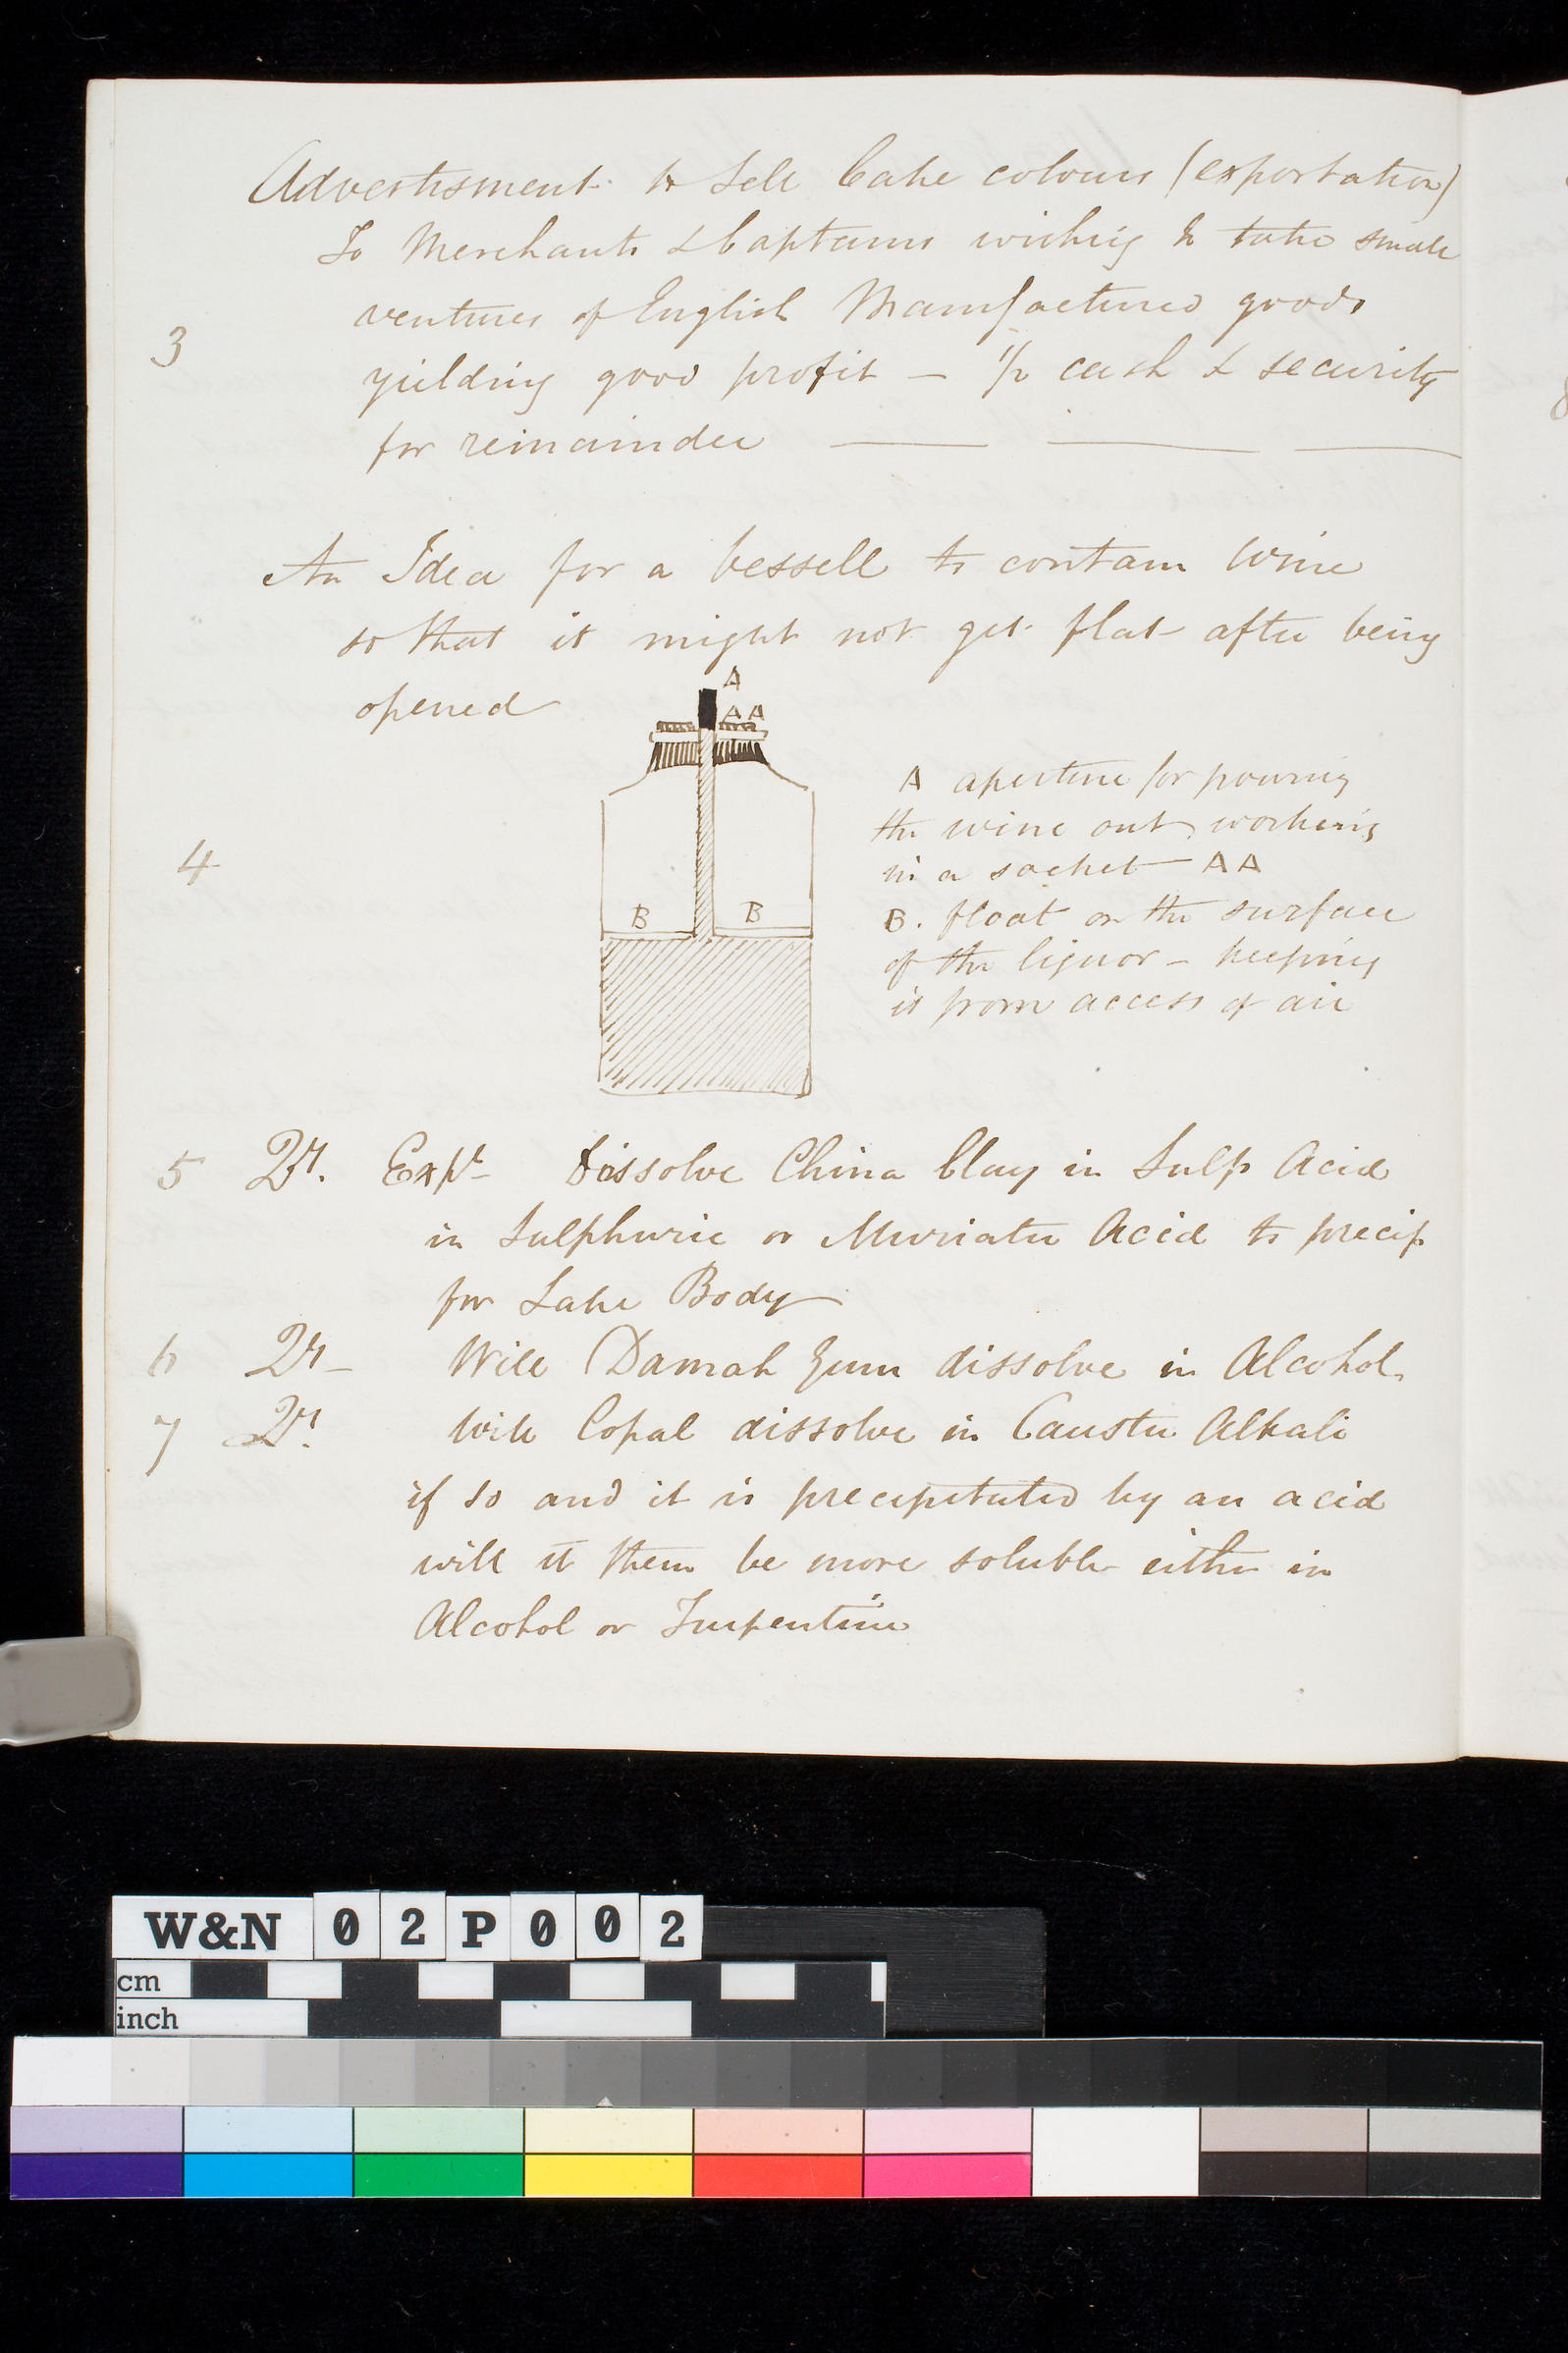 Advertisment to Sell Cake colours (exportation)
To Merchants & Captains wishing to take small
ventures of English Manufactured goods
3
yielding good profit — 1/2 cash & security
for remainder — — —
An Idea for a Vessell to contain Wine
so that it might not get flat after being
opened
A
AA
A aperture for pouring
the wine out working
4
in a socket — AA
B B
B. float on the surface
of the liquor — keeping
it from access of air
5 Qy. Expt Dissolve China Clay in Sulp Acid
in Sulphuric or Muriatic Acid to precip
for Lake Body
6 Qy — Will Damah Gum dissolve in Alcohol.
7 Qy. Will Copal dissolve in Caustic Alkali
if so and it is precipitated by an acid
will it then be more soluble either in
Alcohol or Turpentine
W&N 02P002
cm
inch